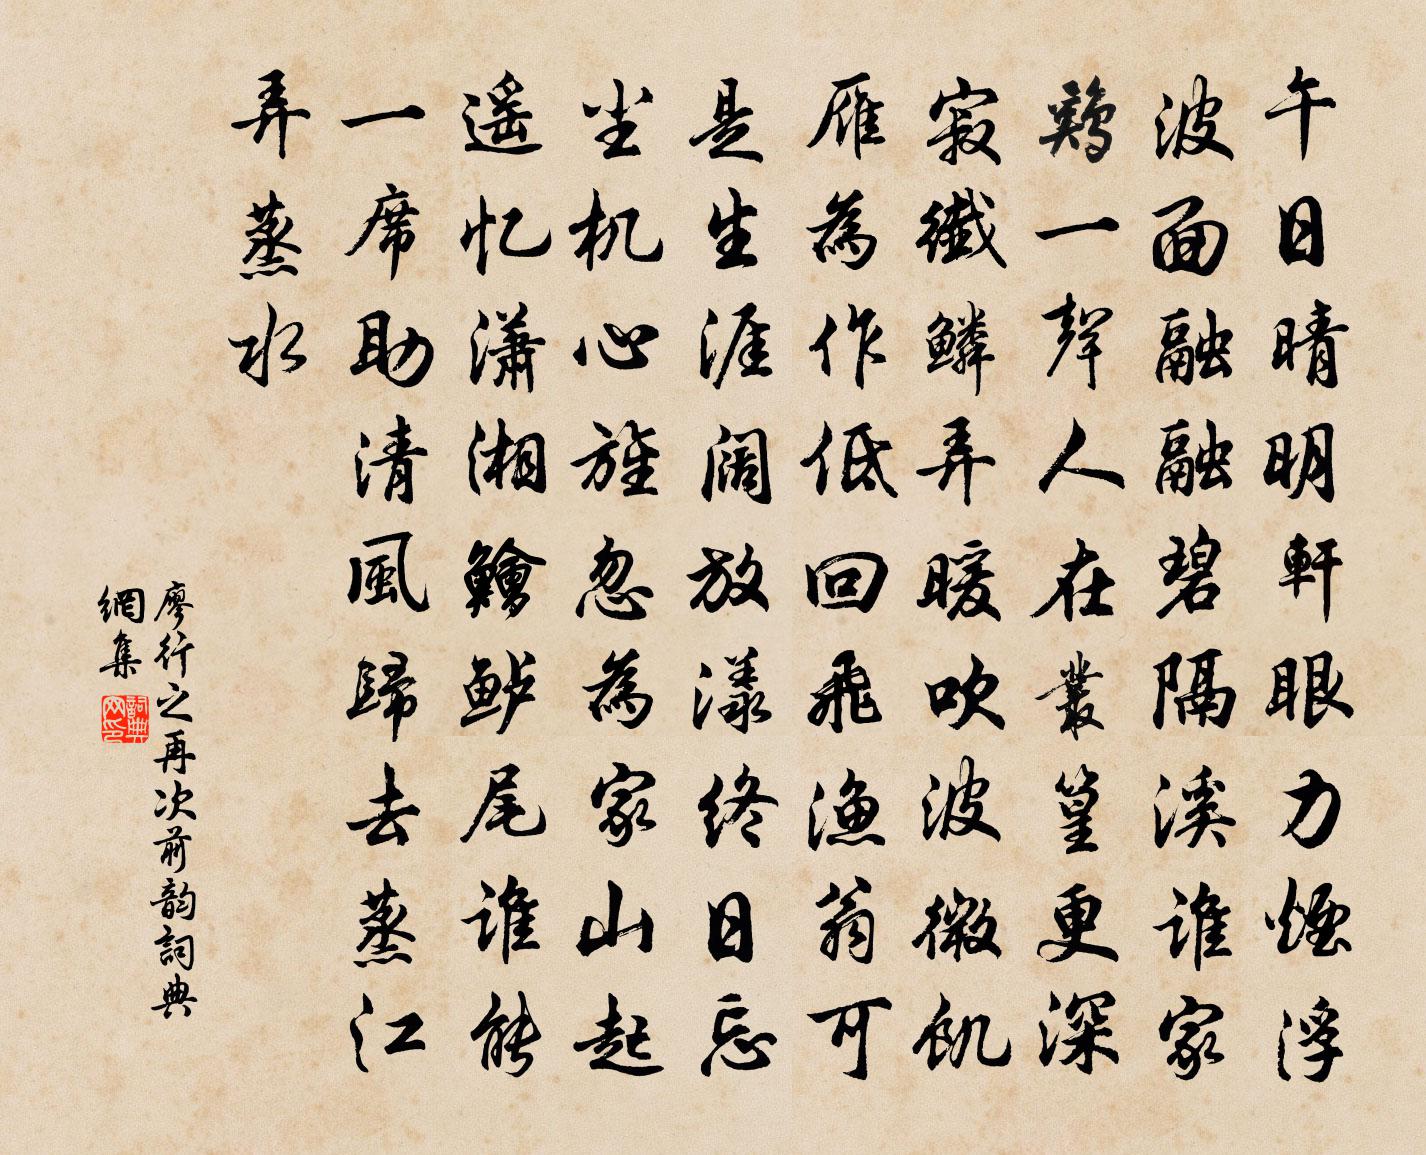 午日晴明軒眼力煙浮
波面融融碧隔溪谁家
鶏一聲人在叢篁更深
寂纖鳞弄暖吹波微飢
雁為作低回飛渔翁可
是生涯阔放漾终日忘
坐机心旌忽為家山起
遥忆潇湘鱠鲈尾谁能
一席助清風歸去蒸江
弄蒸水
廖行之再次前韵詞典
網集
詞典网印